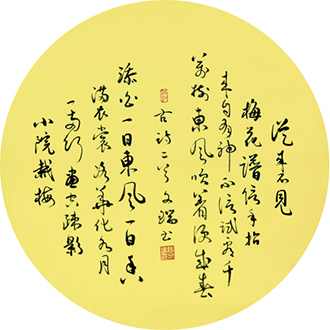 從来不見
梅花譜信手拈
来自有神不信試看千
萬樹東風吹着便成春
小院栽梅
一兩行畫空疎影
滿衣裳冰華化水月
添白一日東風一日香
古詩二首文瑞書